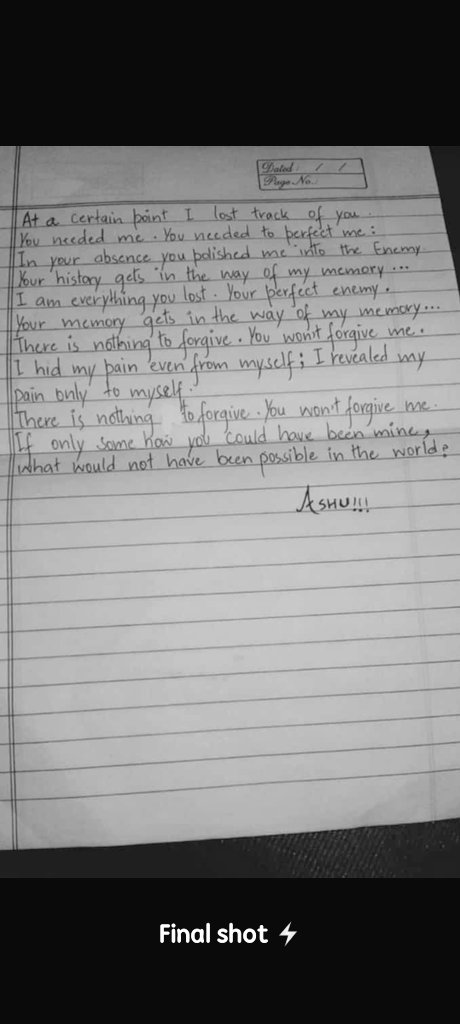 Dated: / /
Page No.:
At a certain point I lost track of you.
You needed me. You needed to perfect me:
In your absence you polished me into the Enemy.
Your history gets in the way of my memory...
I am everything you lost. Your perfect enemy.
Your memory gets in the way of my memory...
There is nothing to forgive. You won't forgive me.
I hid my pain even from myself; I revealed my
pain only to myself.
There is nothing to forgive. You won't forgive me.
If only some how you could have been mine,
what would not have been possible in the world?
ASHU!!!
Final shot ⚡